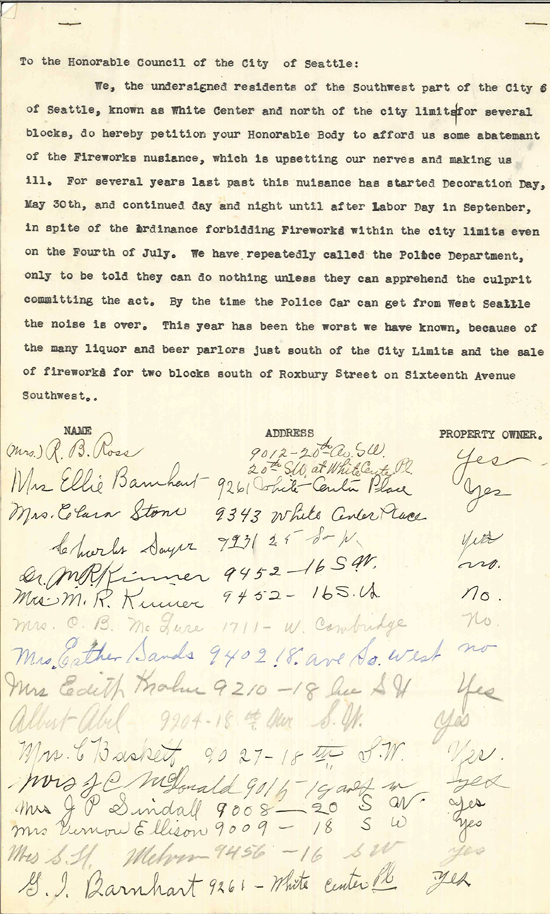 To the Honorable Council of the City of Seattle:
We, the undersigned residents of the Southwest part of the City 6
of Seattle, known as White Center and north of the city limits for several
blocks, do hereby petition your Honorable Body to afford us some abatemant
of the Fireworks nusiance, which is upsetting our nerves and making us
ill. For several years last past this nuisance has started Decoration Day,
May 30th, and continued day and night until after Labor Day in Septenber,
in spite of the Ordinance forbidding Fireworks within the city limits even
on the Fourth of July. We have repeatedly called the Police Department,
only to be told they can do nothing unless they can apprehend the culprit
committing the act. By the time the Police Car can get from West Seattle
the noise is over. This year has been the worst we have known, because of
the many liquor and beer parlors just south of the City Limits and the sale
of fireworks for two blocks south of Roxbury Street on Sixteenth Avenue
Southwest..
NAME ADDRESS PROPERTY OWNER.
(Mrs.) R. B. Ross 9012-20th Av. S.W. Yes
20th S.W. at White Center Pl
Mrs Ellie Barnhart 9261 White Center Place Yes
Mrs. Clara Stone 9343 White Center Place
Charles 7931 25 yes
Dr. M. R. Kinner 9452-16 S.W. no.
Mrs. M. R. Kinner 9452-16 S.W. no.
Mrs. C. B. McLure 1711-W. Cambridge No.
Mrs. Esther Sands 9402 18. ave So. West no
Mrs Edith 9210-18 Ave S W Yes
Albert Abel 9904-18th Ave S.W. Yes
Mrs. C Baskett 9027-18th S.W. Yes.
Mrs J C McDonald 9015-19 ave s w yes
Mrs J P Sindall 9008-20 S W. Yes
Mrs Vernon Ellison 9009-18 S W yes
Mrs S. H. Melvin 9456-16 S W yes
G. I. Barnhart 9261-White Center Pl yes